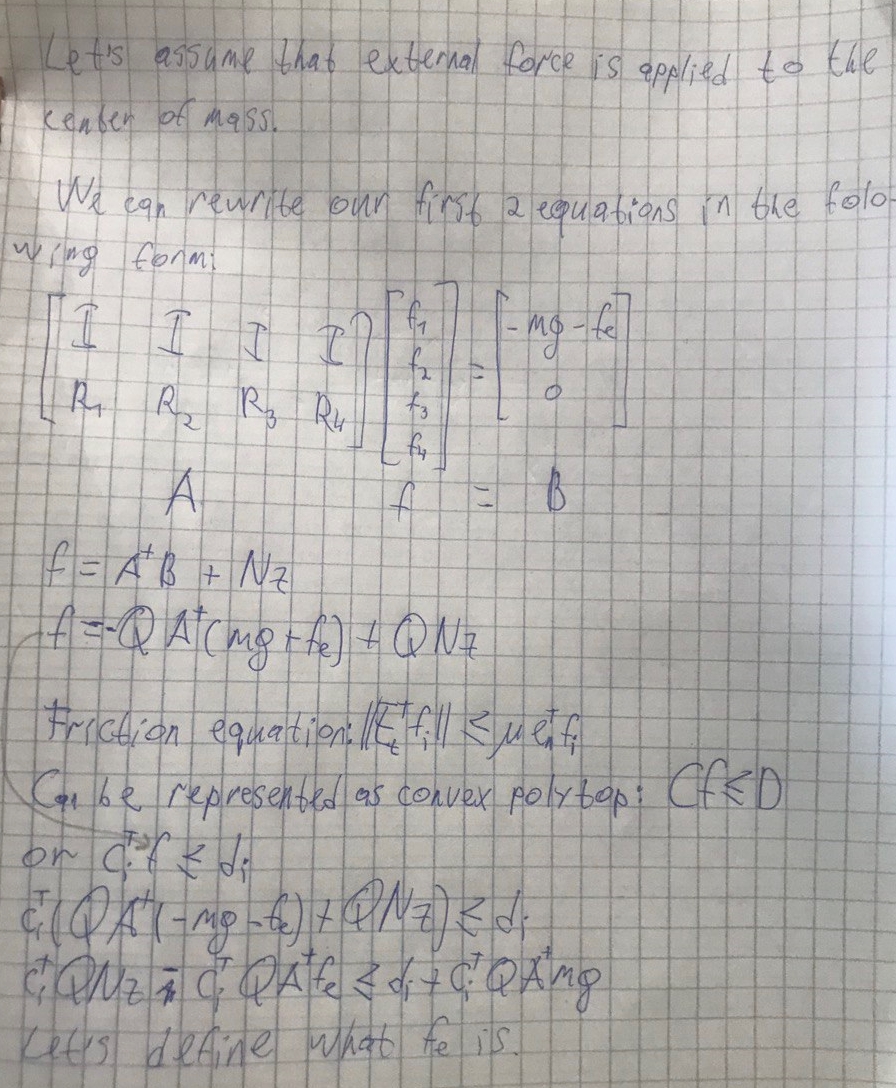 Let's assume that external force is applied to the
center of mass.
We can rewrite our first 2 equations in the folo-
wing form:
[I I I I; R₁ R₂ R₃ R₄] [f₁; f₂; f₃; f₄] = [-mg - fe; 0]
A f = B
f = A⁺B + Nz
f = -QA⁺(mg + fe) + QNz
Friction equation: ||Eₜᵀfᵢ|| ≤ μeₙᵀfᵢ
Can be represented as convex polytop: Cf ≤ D
or cᵢᵀf ≤ dᵢ
cᵢᵀ(QA⁺(-mg - fe) + QNz) ≤ dᵢ
cᵢᵀQNz - cᵢᵀQA⁺fe ≤ dᵢ + cᵢᵀQA⁺mg
Let's define what fe is.